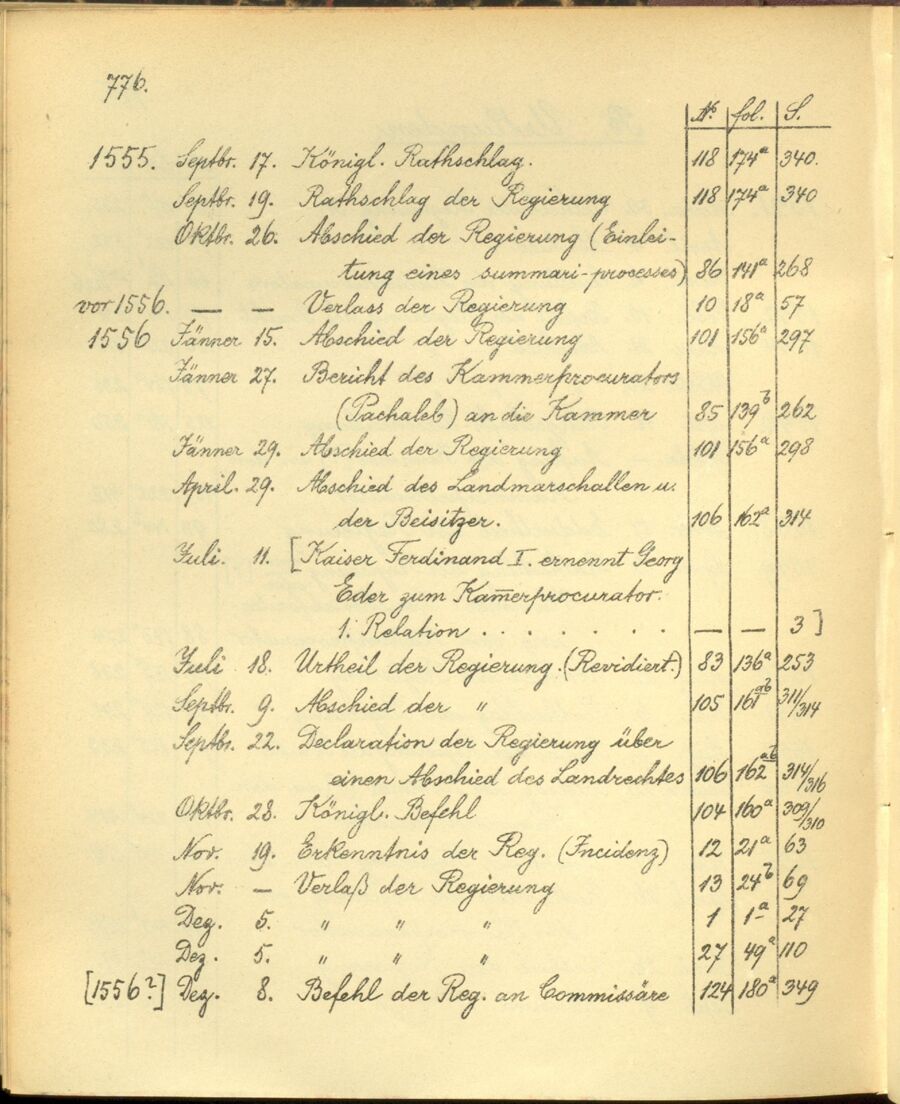 776.
No. fol. S.
1555. Septbr. 17. Königl. Rathschlag. 118 174a 340.
Septbr. 19. Rathschlag der Regierung 118 174a 340
Oktbr. 26. Abschied der Regierung (Einlei-
tung eines summari-processes) 86 141a 268
vor 1556. — — Verlass der Regierung 10 18a 57
1556 Jänner 15. Abschied der Regierung 101 156a 297
Jänner 27. Bericht des Kammerprocurators
(Pachaleb) an die Kammer 85 139b 262
Jänner 29. Abschied der Regierung 101 156a 298
April. 29. Abschied des Landmarschallen u.
der Beisitzer. 106 162a 314
Juli. 11. [Kaiser Ferdinand I. ernennt Georg
Eder zum Kam̅erprocurator.
1. Relation . . . . . . . — — 3]
Juli 18. Urtheil der Regierung. (Revidiert.) 83 136a 253
Septbr. 9. Abschied der " 105 161ab 311/314
Septbr. 22. Declaration der Regierung über
einen Abschied des Landrechtes 106 162ab 314/316
Oktbr. 28. Königl. Befehl 104 160a 309/310
Nov. 19. Erkenntnis der Reg. (Incidenz) 12 21a 63
Nov. — Verlaß der Regierung 13 24b 69
Dez. 5. " " " 1 1a 27
Dez. 5. " " " 27 49a 110
[1556?] Dez. 8. Befehl der Reg. an Commissäre 124 180a 349